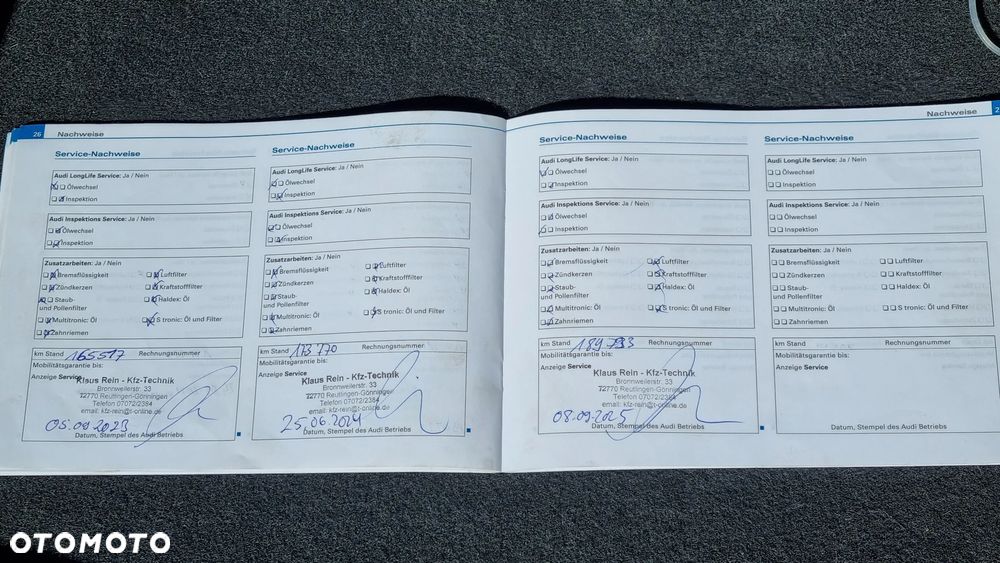 26 Nachweise
Service-Nachweise
Audi LongLife Service: Ja / Nein
Ölwechsel
Inspektion
Audi Inspektions Service: Ja / Nein
Ölwechsel
Inspektion
Zusatzarbeiten: Ja / Nein
Bremsflüssigkeit Luftfilter
Zündkerzen Kraftstofffilter
Staub- Haldex: Öl
und Pollenfilter
Multitronic: Öl S tronic: Öl und Filter
Zahnriemen
km Stand 165517 Rechnungsnummer
Mobilitätsgarantie bis:
Anzeige Service
Klaus Rein - Kfz-Technik
Bronnweilerstr. 33
72770 Reutlingen-Gönningen
Telefon 07072/2384
email: kfz-rein@t-online.de
05.09.2023
Datum, Stempel des Audi Betriebs
Service-Nachweise
Audi LongLife Service: Ja / Nein
Ölwechsel
Inspektion
Audi Inspektions Service: Ja / Nein
Ölwechsel
Inspektion
Zusatzarbeiten: Ja / Nein
Bremsflüssigkeit Luftfilter
Zündkerzen Kraftstofffilter
Staub- Haldex: Öl
und Pollenfilter
Multitronic: Öl S tronic: Öl und Filter
Zahnriemen
km Stand 173 770 Rechnungsnummer
Mobilitätsgarantie bis:
Anzeige Service
Klaus Rein - Kfz-Technik
Bronnweilerstr. 33
72770 Reutlingen-Gönningen
Telefon 07072/2384
email: kfz-rein@t-online.de
25.06.2024
Datum, Stempel des Audi Betriebs
Nachweise 2
Service-Nachweise
Audi LongLife Service: Ja / Nein
Ölwechsel
Inspektion
Audi Inspektions Service: Ja / Nein
Ölwechsel
Inspektion
Zusatzarbeiten: Ja / Nein
Bremsflüssigkeit Luftfilter
Zündkerzen Kraftstofffilter
Staub- Haldex: Öl
und Pollenfilter
Multitronic: Öl S tronic: Öl und Filter
Zahnriemen
km Stand Rechnungsnummer
Mobilitätsgarantie bis:
Anzeige Service
Klaus Rein - Kfz-Technik
Bronnweilerstr. 33
72770 Reutlingen-Gönningen
Telefon 07072/2384
email: kfz-rein@t-online.de
08.09.2025
Datum, Stempel des Audi Betriebs
Service-Nachweise
Audi LongLife Service: Ja / Nein
Ölwechsel
Inspektion
Audi Inspektions Service: Ja / Nein
Ölwechsel
Inspektion
Zusatzarbeiten: Ja / Nein
Bremsflüssigkeit Luftfilter
Zündkerzen Kraftstofffilter
Staub- Haldex: Öl
und Pollenfilter
Multitronic: Öl S tronic: Öl und Filter
Zahnriemen
km Stand Rechnungsnummer
Mobilitätsgarantie bis:
Anzeige Service
Datum, Stempel des Audi Betriebs
OTOMOTO